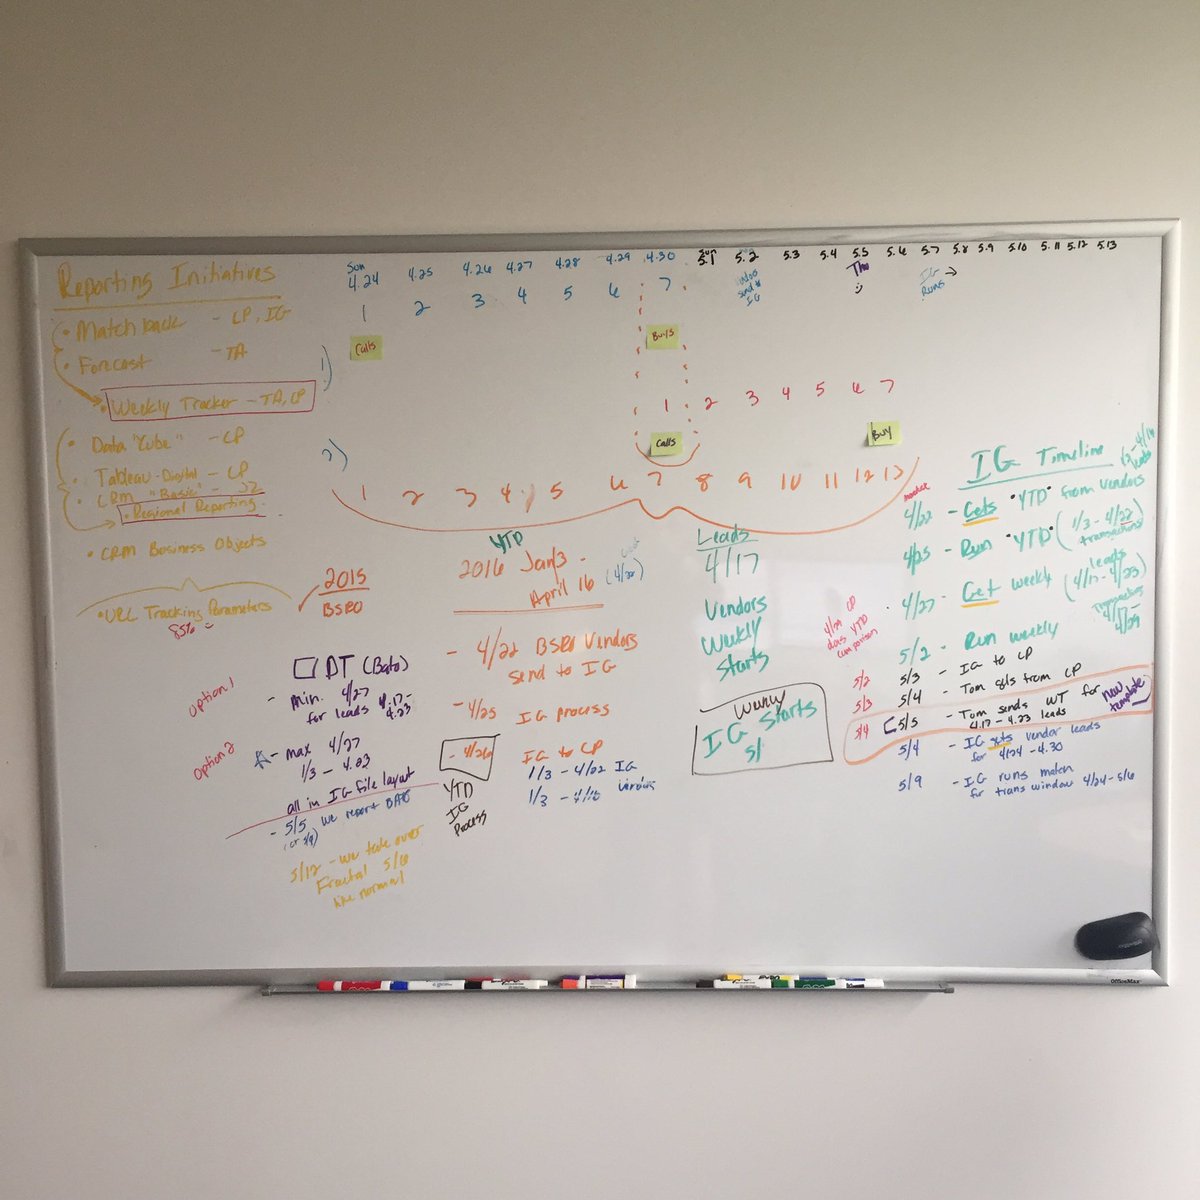 Reporting Initiatives
• Match back - CP, IG
• Forecast - TA
• Weekly Tracker - TA, CP
• Data "Cube" - CP
• Tableau - Digital - CP
• CRM "Basic" - JZ
• Regional Reporting
• CRM Business Objects
• URL Tracking Parameters
85%
Sun
4.24 4.25 4.26 4.27 4.28 4.29 4.30
Sun
5.1 5.2 5.3 5.4 5.5 5.6 5.7 5.8 5.9 5.10 5.11 5.12 5.13
send to
IG
Thu
IG
Runs
1 2 3 4 5 6 7
1)
Calls
Buys
1 2 3 4 5 6 7
2)
Calls
Buy
1 2 3 4 5 6 7 8 9 10 11 12 13
2015
BSRO
Option 1
DT (Bato)
- min. 4/27
for leads 4.17-
4.23
Option 2
- max 4/27
1/3 - 4.23
all in IG file layout
- 5/5 we report
(or 5/9)
5/12 - we take over
Fractal 5/6
like normal
YTD
2016 Jan/3 -
April 16
- 4/22 BSRO Vendors
send to IG
- 4/25 IG process
- 4/26 IG to CP
1/3 - 4/22 IG
1/3 - 4/16 vendors
YTD
IG
Process
Leads
4/17
Vendors
Weekly
Starts
Weekly
IG Starts
5/
IG Timeline
4/22 - Gets "YTD" from vendors
4/25 - Run "YTD" (1/3 - 4/22)
transactions
4/27 - Get weekly (4/17 - 4/23)
leads
transactions
4/17-
4/29
5/2 - Run weekly
5/3 - IG to CP
5/4 - Tom gets from CP
5/5 - Tom sends WT for new template
4.17 - 4.23 leads
5/4 - IG gets vendor leads
for 4/24 - 4.30
5/9 - IG runs match
for trans window 4/24 - 5/6
4/29 CP
does YTD
comparison
5/2
5/3
5/4
OfficeMax